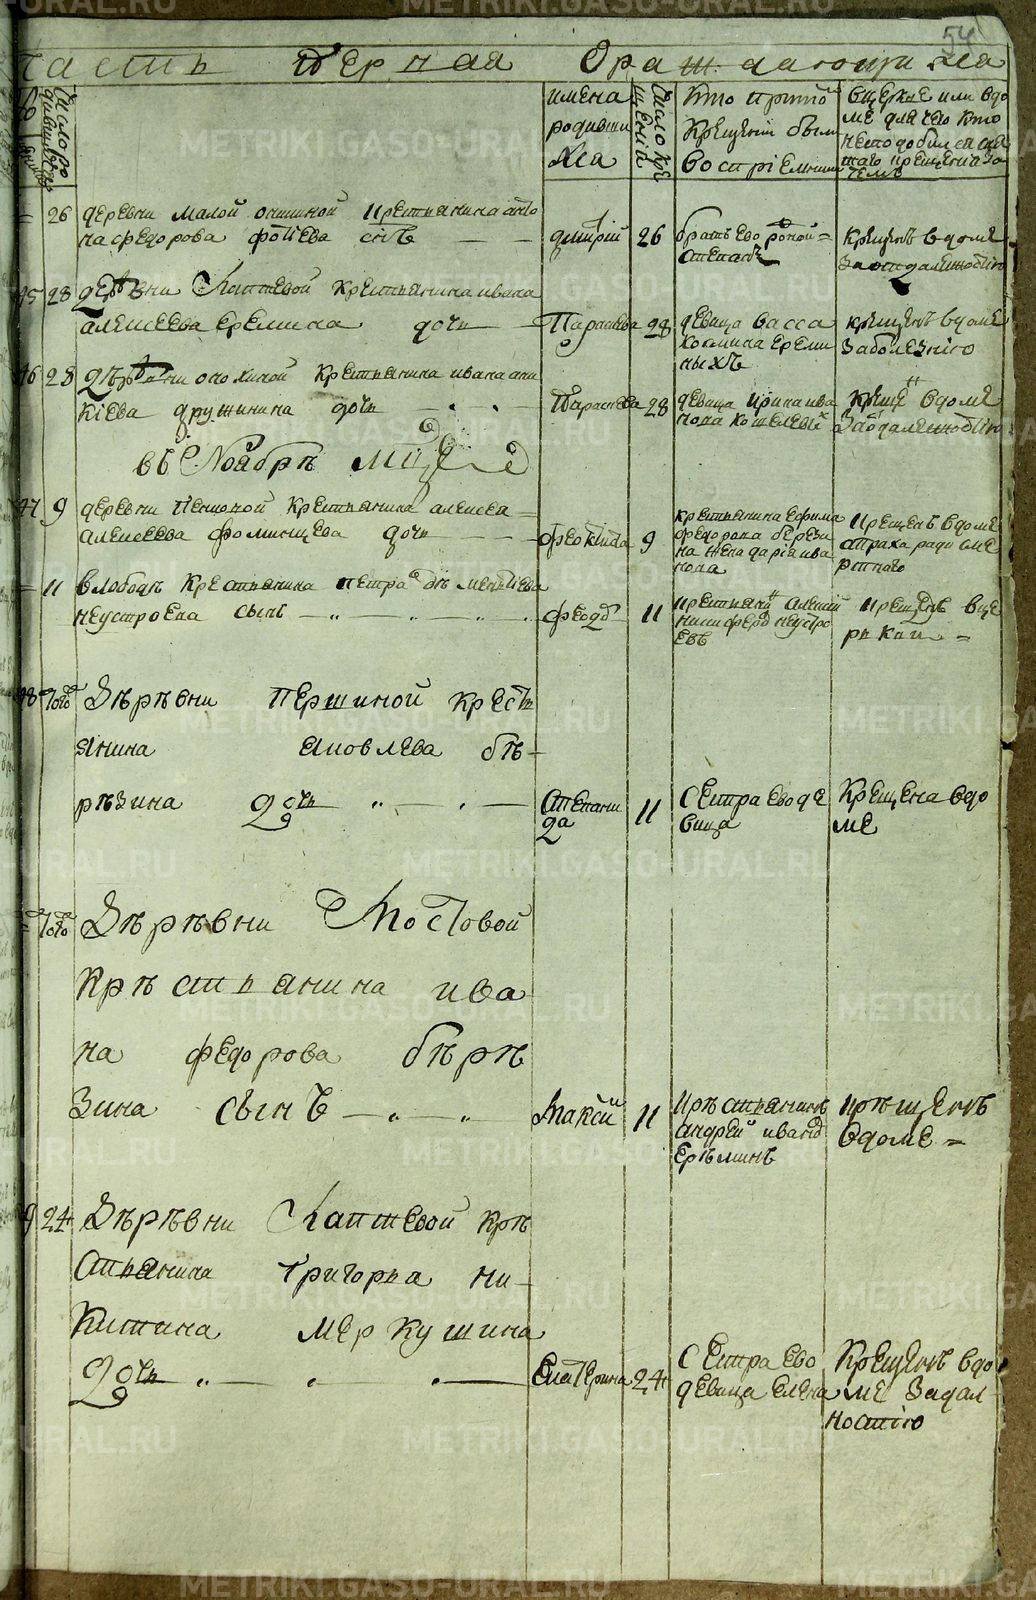 54
часть первая ораждающихся
число ро
имена
родивши
хся
число кре
щенiя
кто притомъ
крещенiи былъ
воспрiемникъ
вцеркве или вдо
ме для чего кто
26 деревни малой крестьянина анто
на федорова фотiева снъ — —
дмитрiй 26 братъ его родной =
степанъ
крещенъ вдоме
заотдаленностiю
45 28 деревни Лаптевой крестьянина ивана
алексеева еремина дочь —
Параскева 28 девица васса
козмина ереми
ныхъ
крещенъ вдоме
заболезнiю
46 28 деревни крестьянина ивана ани
кiева дружинина дочь — . — . —
Параскева 28 девица ирина ива
нова
креще вдоме
заотдаленностiю
въ Ноябръ мцъ
47 9 деревни крестьянина алексея —
алексеева дочь —
феоктиста 9 крестьянина ефима
федорова берези
на жена дарiя ива
нова
крещенъ вдоме
страха ради сме
ртнаго
= 11 вслободъ крестьянина петра дементiева
неустроева сынъ — „ — „ — „ — .
феодоръ 11 крестьянинъ алексiй
никифоровъ неустро
евъ
крещенъ вце
ркви =
48 того Дъръвни Першиной крестъ
янина яковлева бъ—
ръзина дочь „ — . —
степани
да 11 сестра ево де
вица
Крещена вдо
ме
= того Дъръвни Мостовой
Кръстьянина ива
на федорова бъръ
зина сынъ — „ — „
Максим 11 кръстьянинъ
андрей иванов
еръминъ
кръщенъ
вдоме =
9 24 Дъръвни Лаптевой кръ
стьянина григорья ни—
китина меркушина
дочь „ — . . —
Екатерина 24 сестра ево
девица елена
Крещенъ вдо
ме задал
ностiю
METRIKI.GASO-URAL.RU